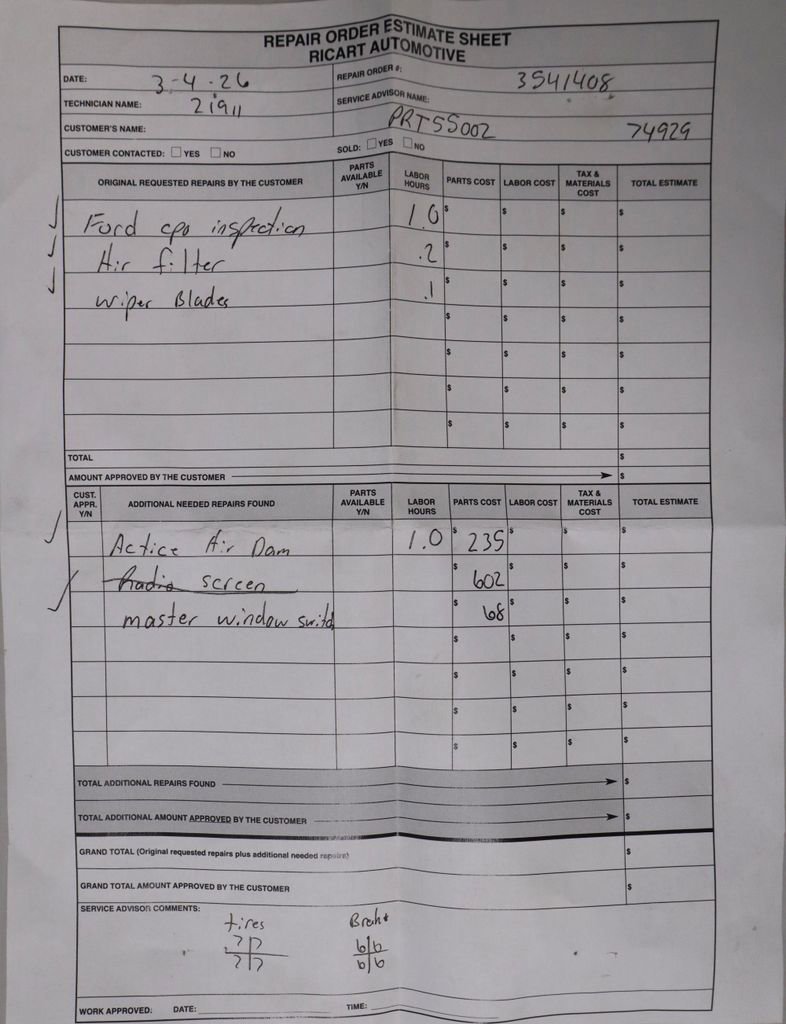 REPAIR ORDER ESTIMATE SHEET
RICART AUTOMOTIVE
DATE: 3-4-26 REPAIR ORDER #: 3541408
TECHNICIAN NAME: 21911 SERVICE ADVISOR NAME:
CUSTOMER'S NAME: PRT5S002 74929
CUSTOMER CONTACTED: YES NO SOLD: YES NO
ORIGINAL REQUESTED REPAIRS BY THE CUSTOMER PARTS AVAILABLE Y/N LABOR HOURS PARTS COST LABOR COST TAX & MATERIALS COST TOTAL ESTIMATE
Ford cpo inspection 1.0 $ $ $ $
Air filter .2 $ $ $ $
wiper Blades .1 $ $ $ $
$ $ $ $
$ $ $ $
$ $ $ $
$ $ $ $
TOTAL $
AMOUNT APPROVED BY THE CUSTOMER $
CUST. APPR. Y/N ADDITIONAL NEEDED REPAIRS FOUND PARTS AVAILABLE Y/N LABOR HOURS PARTS COST LABOR COST TAX & MATERIALS COST TOTAL ESTIMATE
Actice Air Dam 1.0 $ 235 $ $ $
Radio screen $ 602 $ $ $
master window switch $ 68 $ $ $
$ $ $ $
$ $ $ $
$ $ $ $
$ $ $ $
TOTAL ADDITIONAL REPAIRS FOUND $
TOTAL ADDITIONAL AMOUNT APPROVED BY THE CUSTOMER $
GRAND TOTAL (Original requested repairs plus additional needed repairs) $
GRAND TOTAL AMOUNT APPROVED BY THE CUSTOMER $
SERVICE ADVISOR COMMENTS:
tires Brake
7 7 6 6
7 7 6 6
WORK APPROVED: DATE: TIME: